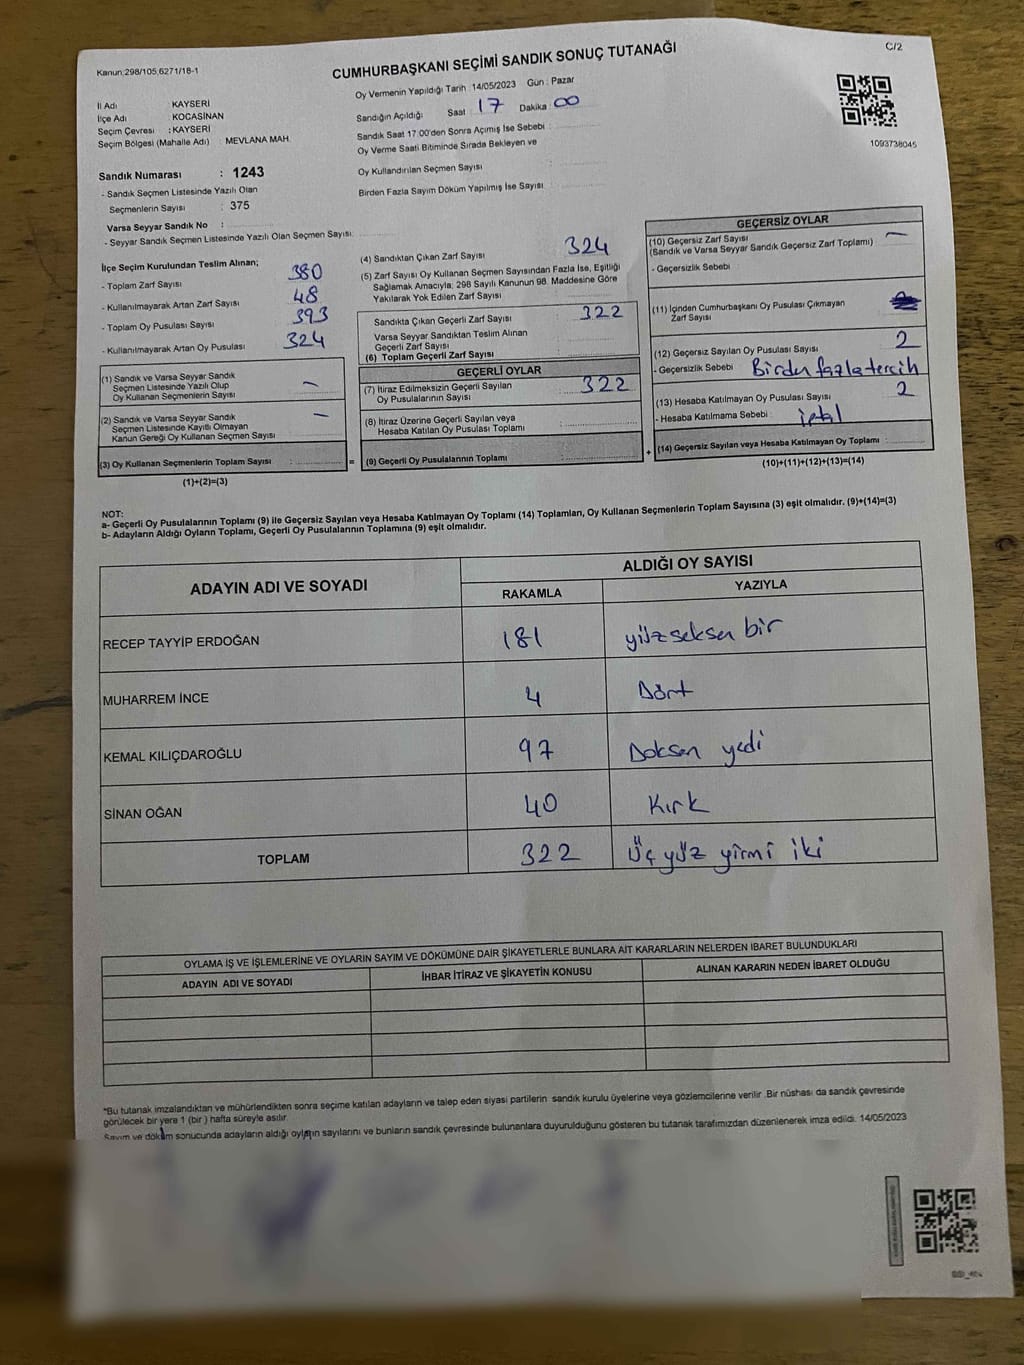 Kanun:298/105,6271/18-1
CUMHURBAŞKANI SEÇİMİ SANDIK SONUÇ TUTANAĞI
C/2
İl Adı : KAYSERİ
İlçe Adı : KOCASİNAN
Seçim Çevresi : KAYSERİ
Seçim Bölgesi (Mahalle Adı) : MEVLANA MAH.
Sandık Numarası : 1243
- Sandık Seçmen Listesinde Yazılı Olan
Seçmenlerin Sayısı : 375
Varsa Seyyar Sandık No :
- Seyyar Sandık Seçmen Listesinde Yazılı Olan Seçmen Sayısı:
Oy Vermenin Yapıldığı Tarih : 14/05/2023 Gün : Pazar
Sandığın Açıldığı Saat : 17 Dakika : 00
Sandık Saat 17:00'den Sonra Açımış İse Sebebi :
Oy Verme Saati Bitiminde Sırada Bekleyen ve
Oy Kullandırılan Seçmen Sayısı :
Birden Fazla Sayım Döküm Yapılmış İse Sayısı :
1093738045
İlçe Seçim Kurulundan Teslim Alınan;
- Toplam Zarf Sayısı : 380
- Kullanılmayarak Artan Zarf Sayısı : 48
- Toplam Oy Pusulası Sayısı : 393
- Kullanılmayarak Artan Oy Pusulası : 324
(1) Sandık ve Varsa Seyyar Sandık
Seçmen Listesinde Yazılı Olup
Oy Kullanan Seçmenlerin Sayısı : —
(2) Sandık ve Varsa Seyyar Sandık
Seçmen Listesinde Kayıtlı Olmayan
Kanun Gereği Oy Kullanan Seçmen Sayısı : —
(3) Oy Kullanan Seçmenlerin Toplam Sayısı :
=
(1)+(2)=(3)
(4) Sandıktan Çıkan Zarf Sayısı : 324
(5) Zarf Sayısı Oy Kullanan Seçmen Sayısından Fazla İse, Eşitliği
Sağlamak Amacıyla; 298 Sayılı Kanunun 98. Maddesine Göre
Yakılarak Yok Edilen Zarf Sayısı :
Sandıkta Çıkan Geçerli Zarf Sayısı : 322
Varsa Seyyar Sandıktan Teslim Alınan
Geçerli Zarf Sayısı :
(6) Toplam Geçerli Zarf Sayısı :
GEÇERLİ OYLAR
(7) İtiraz Edilmeksizin Geçerli Sayılan
Oy Pusulalarının Sayısı : 322
(8) İtiraz Üzerine Geçerli Sayılan veya
Hesaba Katılan Oy Pusulası Toplamı :
(9) Geçerli Oy Pusulalarının Toplamı :
+
GEÇERSİZ OYLAR
(10) Geçersiz Zarf Sayısı
(Sandık ve Varsa Seyyar Sandık Geçersiz Zarf Toplamı) : —
- Geçersizlik Sebebi :
(11) İçinden Cumhurbaşkanı Oy Pusulası Çıkmayan
Zarf Sayısı
(12) Geçersiz Sayılan Oy Pusulası Sayısı : 2
- Geçersizlik Sebebi : Birden fazla tercih
(13) Hesaba Katılmayan Oy Pusulası Sayısı : 2
- Hesaba Katılmama Sebebi : iptal
(14) Geçersiz Sayılan veya Hesaba Katılmayan Oy Toplamı :
(10)+(11)+(12)+(13)=(14)
NOT:
a- Geçerli Oy Pusulalarının Toplamı (9) ile Geçersiz Sayılan veya Hesaba Katılmayan Oy Toplamı (14) Toplamları, Oy Kullanan Seçmenlerin Toplam Sayısına (3) eşit olmalıdır. (9)+(14)=(3)
b- Adayların Aldığı Oyların Toplamı, Geçerli Oy Pusulalarının Toplamına (9) eşit olmalıdır.
ADAYIN ADI VE SOYADI
ALDIĞI OY SAYISI
RAKAMLA YAZIYLA
RECEP TAYYİP ERDOĞAN 181 yüzseksen bir
MUHARREM İNCE 4 Dört
KEMAL KILIÇDAROĞLU 97 Doksan yedi
SİNAN OĞAN 40 Kırk
TOPLAM 322 Üç yüz yirmi iki
OYLAMA İŞ VE İŞLEMLERİNE VE OYLARIN SAYIM VE DÖKÜMÜNE DAİR ŞİKAYETLERLE BUNLARA AİT KARARLARIN NELERDEN İBARET BULUNDUKLARI
ADAYIN ADI VE SOYADI İHBAR İTİRAZ VE ŞİKAYETİN KONUSU ALINAN KARARIN NEDEN İBARET OLDUĞU
*Bu tutanak imzalandıktan ve mühürlendikten sonra seçime katılan adayların ve talep eden siyasi partilerin sandık kurulu üyelerine veya gözlemcilerine verilir. Bir nüshası da sandık çevresinde
görülecek bir yere 1 (bir) hafta süreyle asılır.
Sayım ve döküm sonucunda adayların aldığı oyların sayılarını ve bunların sandık çevresinde bulunanlara duyurulduğunu gösteren bu tutanak tarafımızdan düzenlenerek imza edildi. 14/05/2023